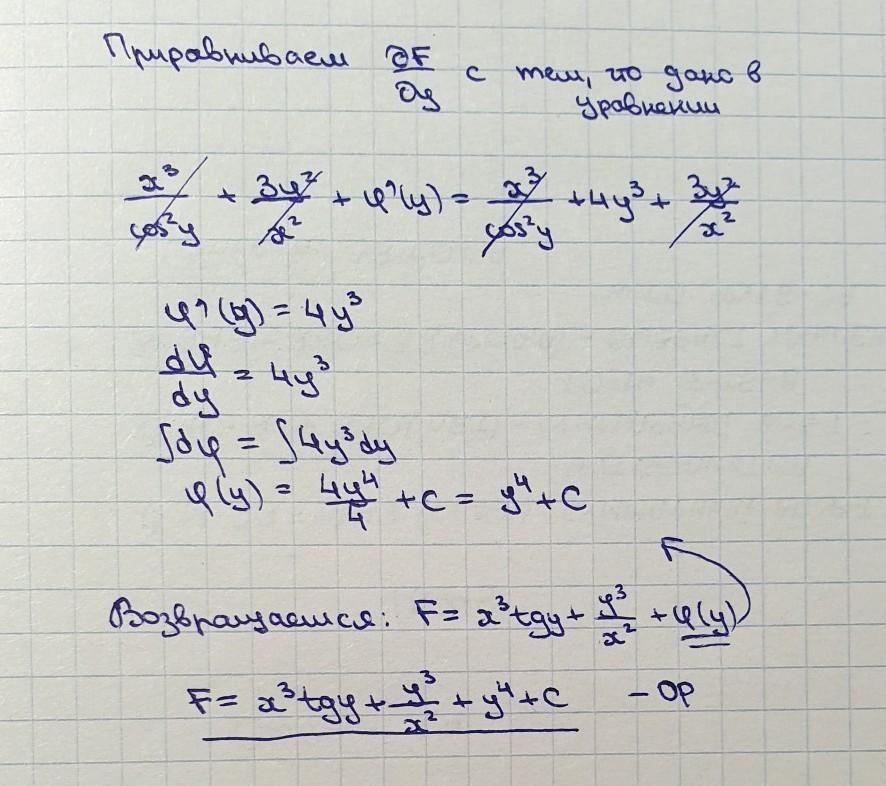 Приравниваем ∂F/∂y с тем, что дано в
уравнении
x³/cos²y + 3y²/x² + φ'(y) = x³/cos²y + 4y³ + 3y²/x²
φ'(y) = 4y³
dφ/dy = 4y³
∫dφ = ∫4y³dy
φ(y) = 4y⁴/4 + C = y⁴ + C
Возвращаемся: F = x³tgy + y³/x² + φ(y)
F = x³tgy + y³/x² + y⁴ + C – ОР